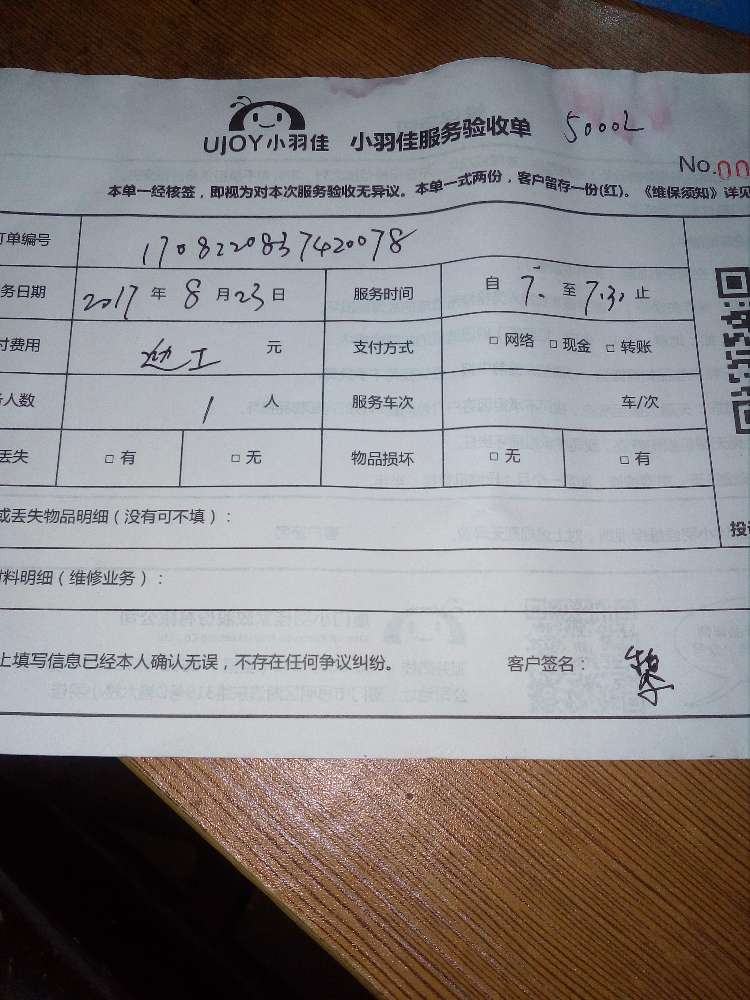 UJOY小羽佳 小羽佳服务验收单 5000L
No.00
本单一经核签，即视为对本次服务验收无异议。本单一式两份，客户留存一份(红)。《维保须知》详见
订单编号 1708220837420078
务日期 2017 年 8 月 23 日 服务时间 自 7. 至 7.30 止
付费用 元 支付方式 □ 网络 □ 现金 □ 转账
人数 1 人 服务车次 车/次
丢失 □ 有 □ 无 物品损坏 □ 无 □ 有
或丢失物品明细（没有可不填）：
材料明细（维修业务）：
投诉
上填写信息已经本人确认无误，不存在任何争议纠纷。 客户签名：